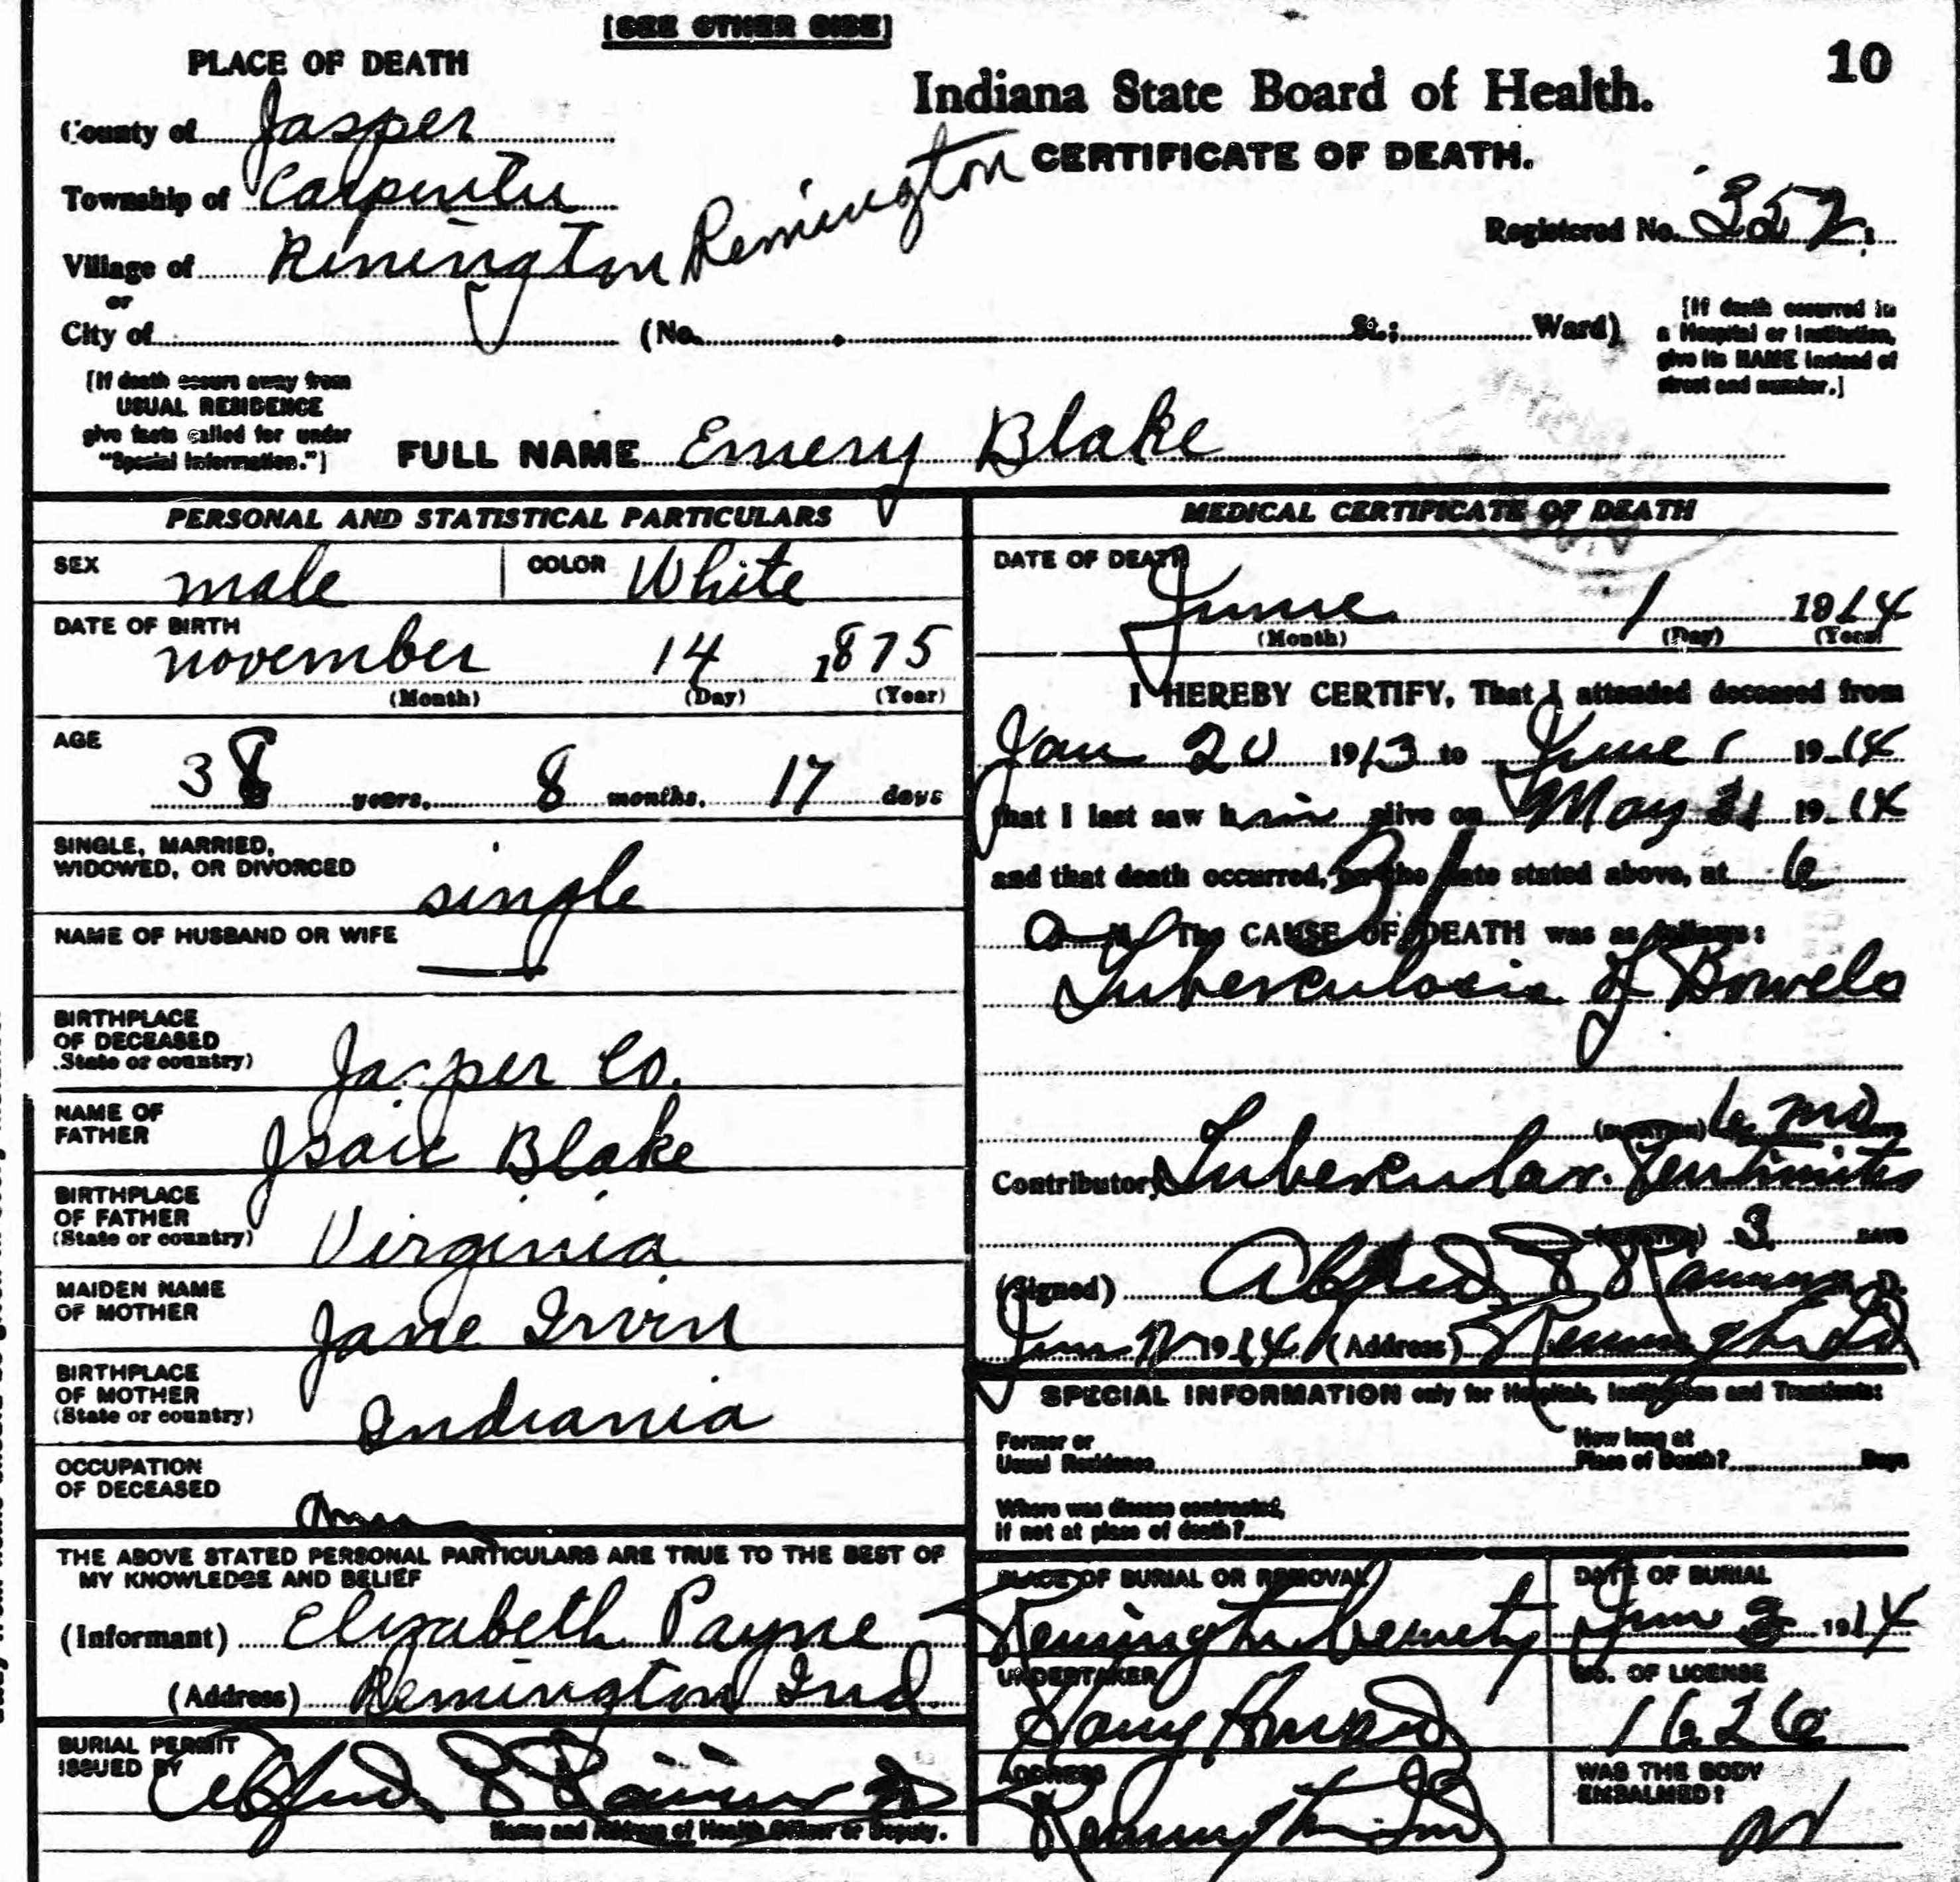 [SEE OTHER SIDE]
10
PLACE OF DEATH
Indiana State Board of Health.
CERTIFICATE OF DEATH.
County of Jasper
Township of Carpenter
Registered No. 352
Village of Rinington Remington
or
City of (No. St.; Ward)
[If death occurred in
a Hospital or Institution,
give its NAME instead of
street and number.]
[If death occurs away from
USUAL RESIDENCE
give facts called for under
"Special Information."]
FULL NAME Emery Blake
PERSONAL AND STATISTICAL PARTICULARS
SEX male COLOR White
DATE OF BIRTH
november 14 1875
(Month) (Day) (Year)
AGE
38 years, 8 months, 17 days
SINGLE, MARRIED,
WIDOWED, OR DIVORCED
single
NAME OF HUSBAND OR WIFE
BIRTHPLACE
OF DECEASED
(State or country) Jasper Co.
NAME OF
FATHER Isaic Blake
BIRTHPLACE
OF FATHER
(State or country) Virginia
MAIDEN NAME
OF MOTHER Jane Irvin
BIRTHPLACE
OF MOTHER
(State or country) Indiania
OCCUPATION
OF DECEASED
THE ABOVE STATED PERSONAL PARTICULARS ARE TRUE TO THE BEST OF
MY KNOWLEDGE AND BELIEF
(Informant) Elizabeth Payne
(Address) Remington Ind
BURIAL PERMIT
ISSUED BY Alfred
Name and Address of Health Officer or Deputy.
MEDICAL CERTIFICATE OF DEATH
DATE OF DEATH
June 1 1914
(Month) (Day) (Year)
I HEREBY CERTIFY, That I attended deceased from
Jan 20 1913 to June 1 1914
that I last saw him alive on May 31 1914
and that death occurred, on the date stated above, at 6
a M. The CAUSE OF DEATH was as follows:
Tuberculosis of Bowels
(DURATION) 6 mo
Contributory Tubercular
(DURATION) 3 DAYS
(Signed) Alfred
1914 (Address) Remington Ind
SPECIAL INFORMATION only for Hospitals, Institutions and Transients:
Former or
Usual Residence
How long at
Place of Death? Days
Where was disease contracted,
if not at place of death?
PLACE OF BURIAL OR REMOVAL
Remington Cemety
DATE OF BURIAL
Jun 3 1914
UNDERTAKER
NO. OF LICENSE
1626
ADDRESS
Remington Ind
WAS THE BODY
EMBALMED?